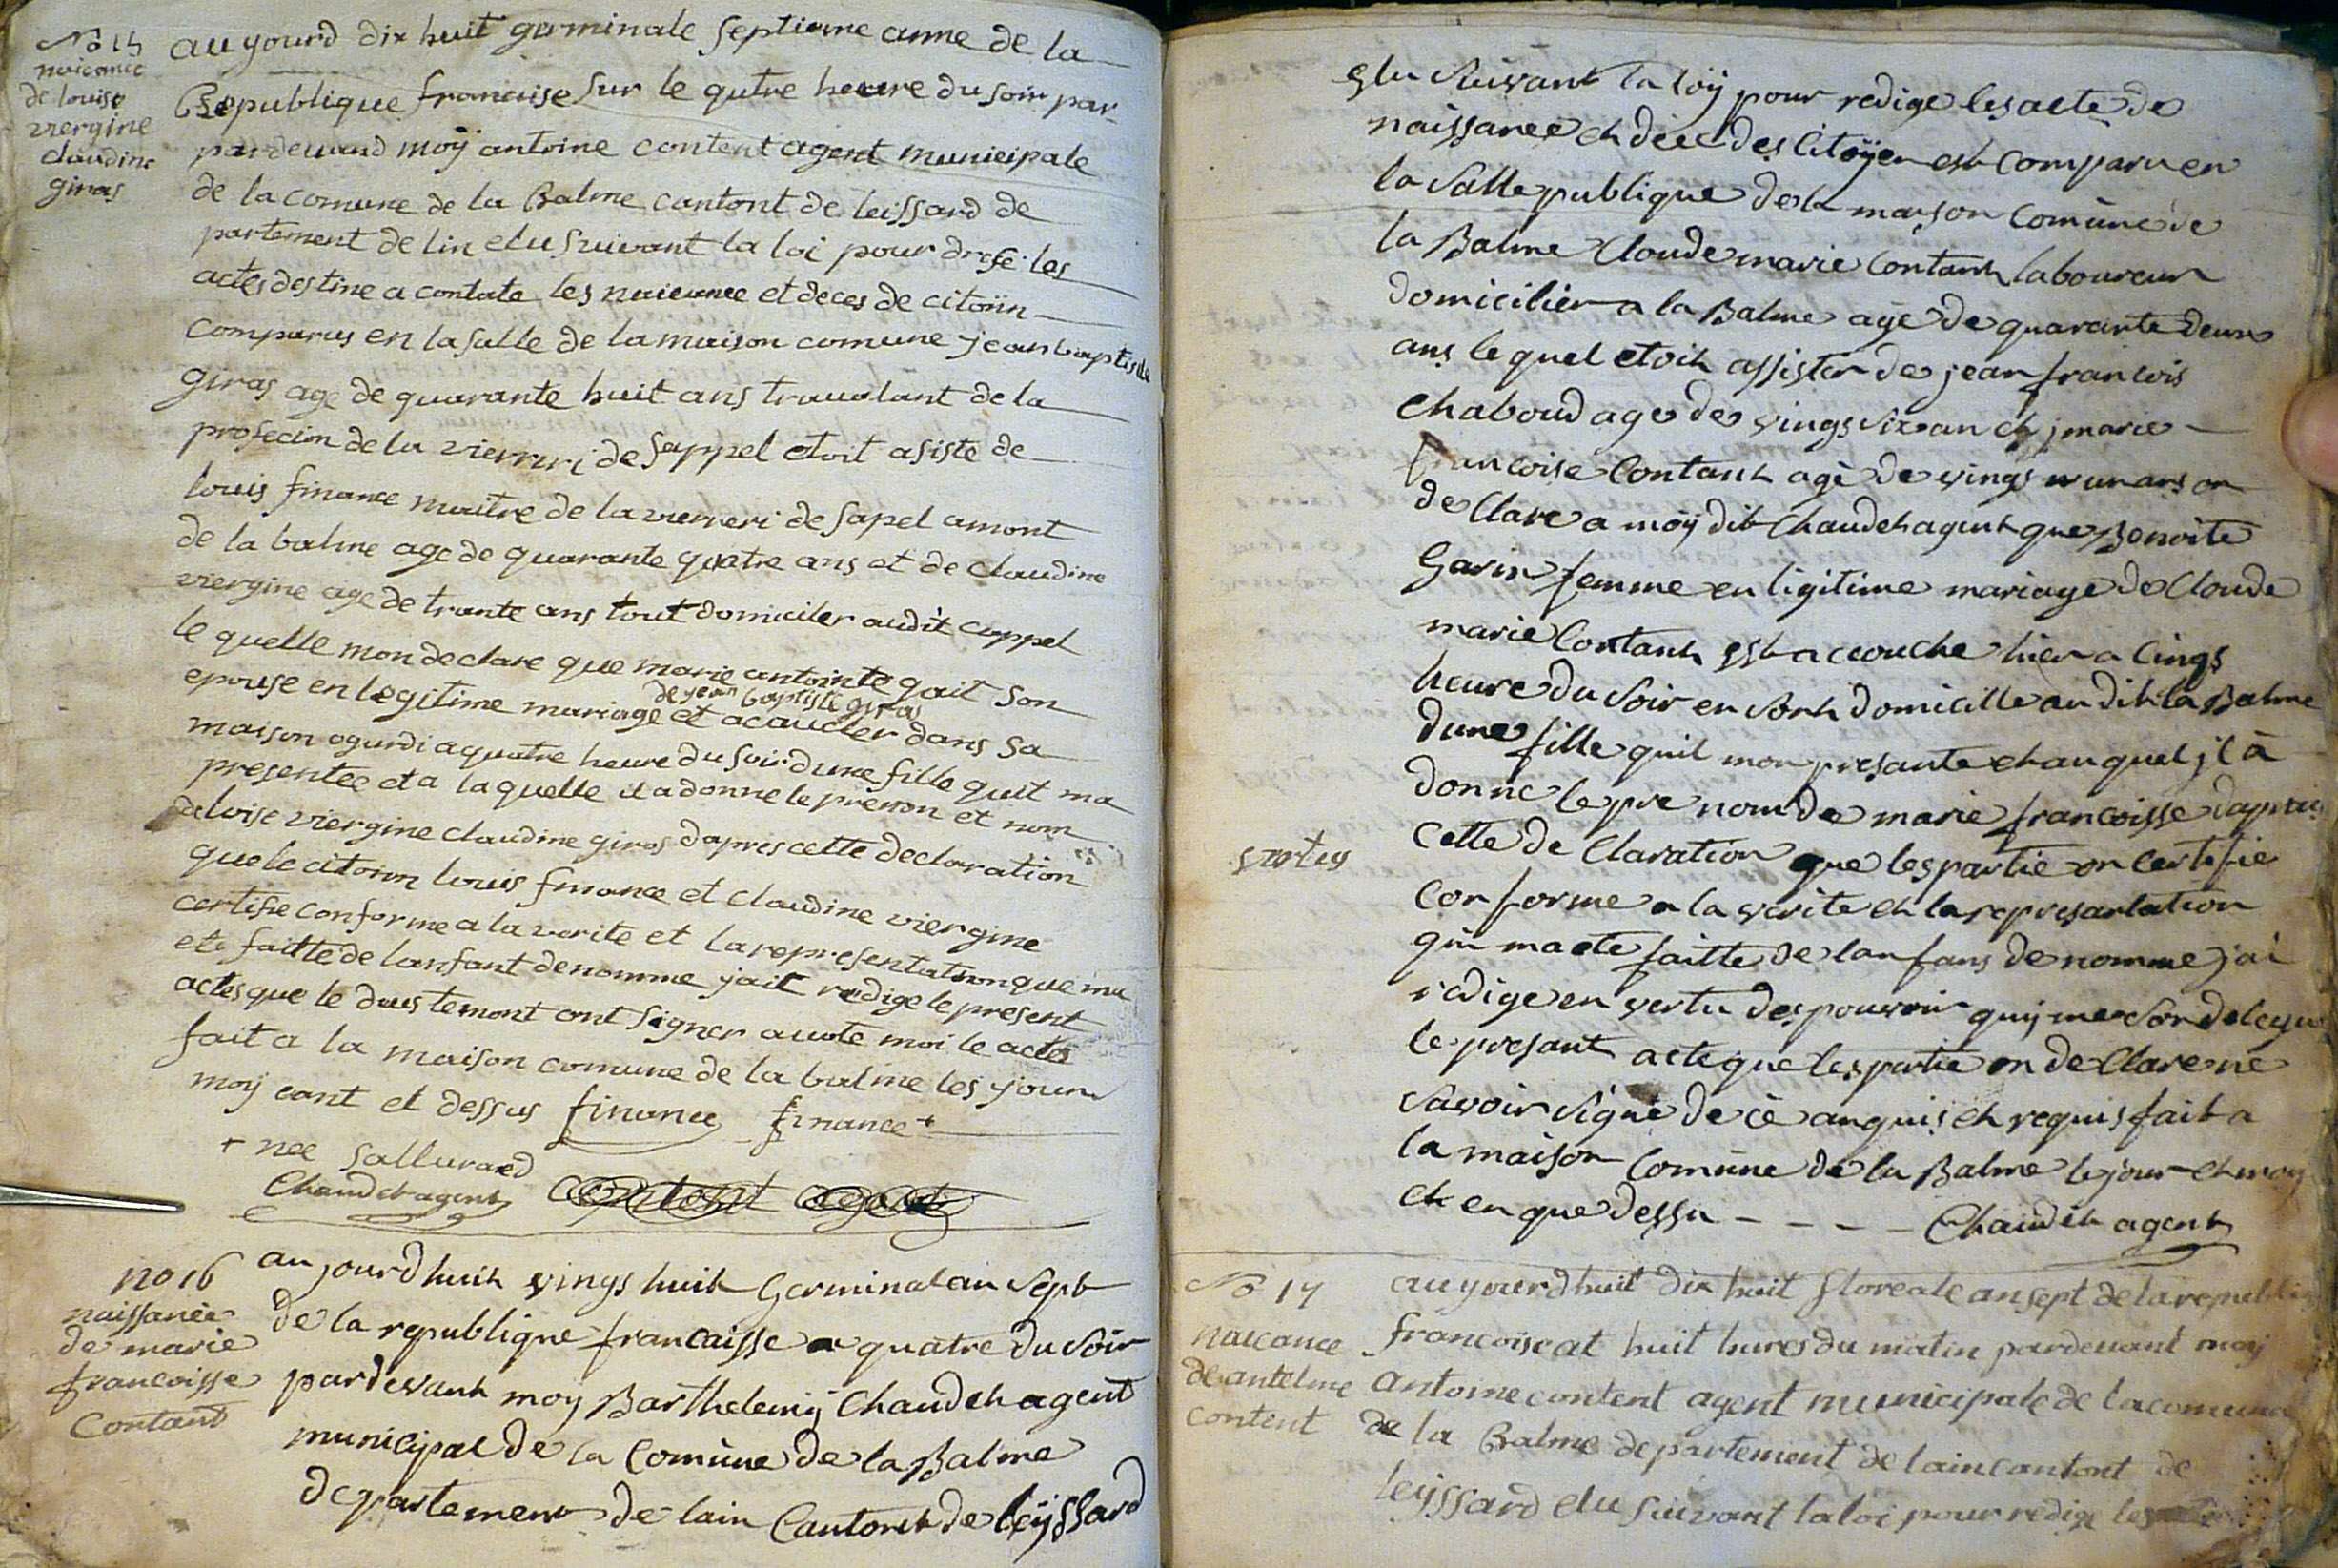 No 15
naicance
de louise
viergine
claudine
giras
au yourd dix huit germinale septieme anne de la
Republique francaise sur le qutre heure du soir par
pardevand moÿ antoine content agent municipale
de la comune de la Balme cantont de leissard de
partement de lin elu suivant la loi pour drese les
actes destine a contate les naicance et deces de citoiin
comparus en la salle de la maison comune jean baptiste
giras age de quarante huit ans travalant de la
profecion de la vierreri de sappel etoit asiste de
louis finance maitre de la vierreri de sapel amont
de la balme age de quarante quatre ans et de claudine
viergine age de trante ans tout domiciler audit cappel
le quelle mon declare que marie antointe gait son
epouse en legitime mariage et acaucler dans sa
de jean baptiste giras
maison ogurdi a quatre heure du soir dune fille quit ma
presentee et a la quelle il a donne le prenon et nom
de loise viergine claudine giras dapres cette declaration
que le citoien louis finance et claudine viergine
certifie conforme a la verite et la representation que ma
ete faitte de lanfant denomme jait redige le present
actes que le deus temont ont signer avote moi le actes
fait a la maison comune de la balme les yjour
moy cant et dessus finance finance +
+ nee sallurard
Chaudet agent content agent
no 16
naissance
de marie
francoisse
Contant
au jourdhuit vings huit Germinal an Sept
de la republique francaisse a quatre du Soir
pardevant moy Barthelemÿ Chaudet agent
municipal de la Comùne de la Balme
departement de lain Cantont de leÿssard
Elu Suivant la loÿ pour redige les acte de
naissance et décé des Citoÿen est Comparu en
la Salle publique de la maison Comùne de
la Balme Cloude marie Contant laboureur
domicilier a la Balme agé de quarante deux
ans le quel etoit assister de jean francois
Chaboud age de vings six an et jmarie
francoise Contant agé de vings un ans on
de Clare a moÿ dit Chaudet agent que Benoite
Garin femme en ligitime mariage de Cloude
marie Contant est accouche hier a Cings
heure du Soir en Sont domicille au dit la Balme
dune fille quil mon presante et au quel jl à
donne le pre nom de marie francoisse dapres
Cette de Claration que les partie on Certifie
Conforme a la verite et la represantation
qui ma ete faitte de lan fans de nomme jai
redige en vertu des pouvoir quÿ me Son delegue
le presant acte que les partie on de Clare ne
Savoir Signe de cè anquis et requis fait a
la maison Comùne de la Balme le jour et moy
et en que dessu - - - - Chaudet agent
No 17
naicance
de antelme
content
auyourdhuit dix huit floreale an sept de la republi
francoise at huit hures du matin pardevant moy
antoine content agent municipale de la comune
de la Balme departement de lain cantont de
leyssard elu suivant la loi pour redige les